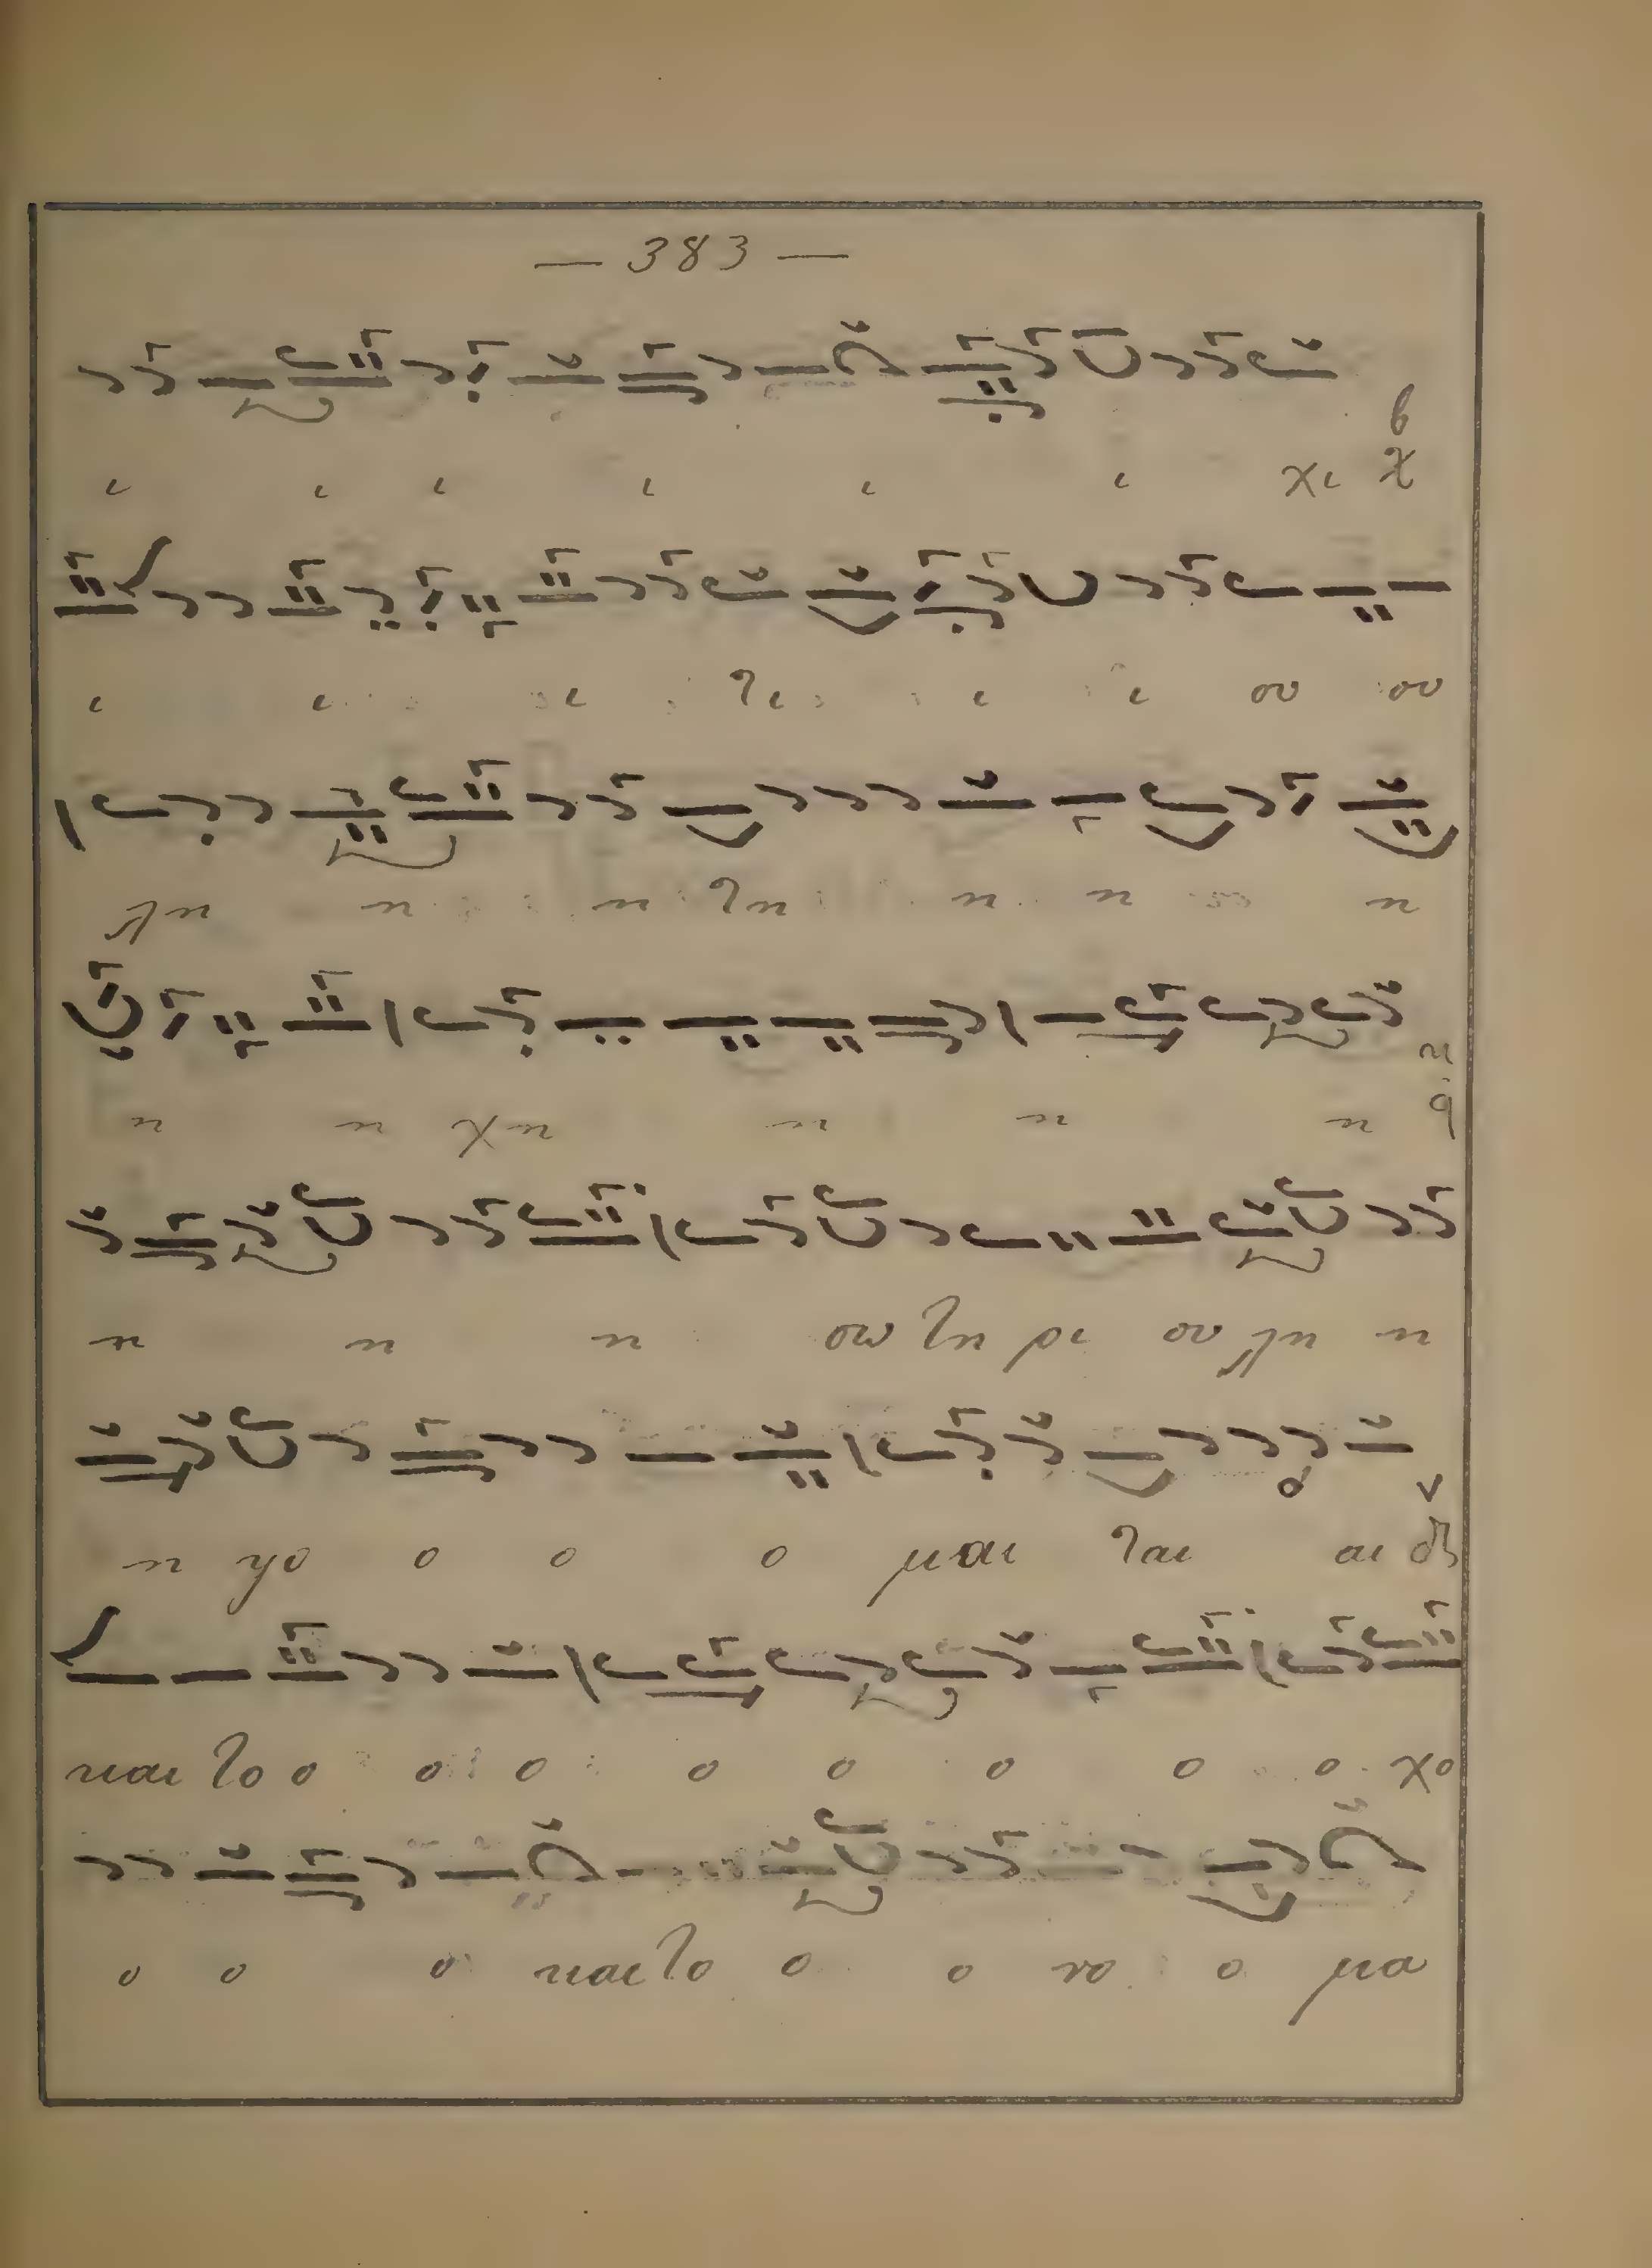 — 383 —
ι ι ι ι ι ι χι
ι ι ι τι ι ι ου ου
λη η η τη η η η
η η χη η η η
η η η σω τη ρι ου λη η
η γο ο ο ο μαι ται αι
και το ο ο ο ο ο ο ο ο χο
ο ο ο και το ο ο νο ο μα